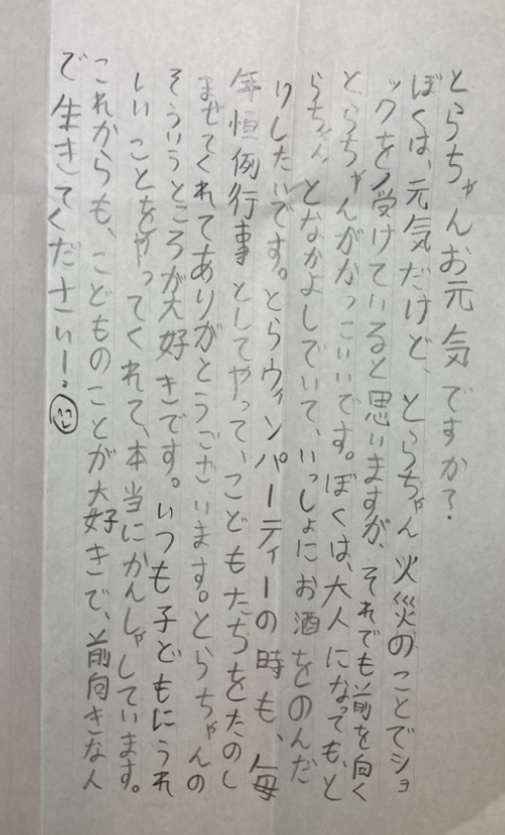 とらちゃんお元気ですか?
ぼくは、元気だけど、とらちゃん火災のことでショ
ックを受けていると思いますが、それでも前を向く
とらちゃんがかっこいいです。ぼくは、大人になっても、と
らちゃんとなかよしでいて、いっしょにお酒をのんだ
りしたいです。とらウィンパーティーの時も、毎
年恒例行事としてやって、こどもたちをたのし
ませてくれてありがとうございます。とらちゃんの
そういうところが大好きです。いつも子どもにうれ
しいことをやってくれて、本当にかんしゃしています。
これからも、こどものことが大好きで、前向きな人
で生きてくださいー!